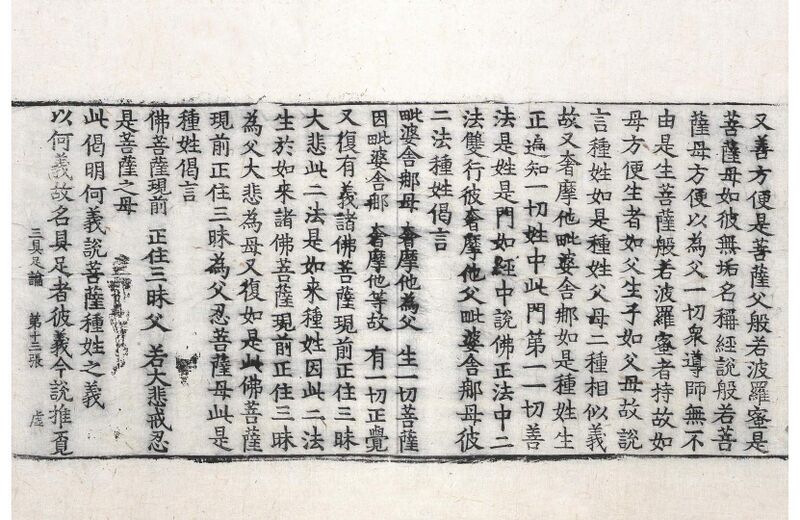 又善方便是菩薩父般若波羅蜜是
菩薩母如彼無垢名稱經說般若菩
薩母方便以為父一切衆導師無不
由是生菩薩般若波羅蜜者持故如
母方便生者如父生子如父母故說
言種姓如是種姓父母二種相似義
故又奢摩他毗婆舍那如是種姓生
正遍知一切姓中此門第一一切善
法是姓是門如經中說佛正法中二
法雙行彼奢摩他父毗婆舍那母彼
二法種姓偈言
毗婆舍那母 奢摩他為父 生一切菩薩
因毗婆舍那 奢摩他等故 有一切正覺
又復有義諸佛菩薩現前正住三昧
大悲此二法是如來種姓因此二法
生於如來諸佛菩薩現前正住三昧
為父大悲為母又復如是此佛菩薩
現前正住三昧為父忍菩薩母此是
種姓偈言
佛菩薩現前 正住三昧父 若大悲戒忍
是菩薩之母
此偈明何義說菩薩種姓之義
三具足論 第十三張 虛
以何義故名具足者彼義今說推覔